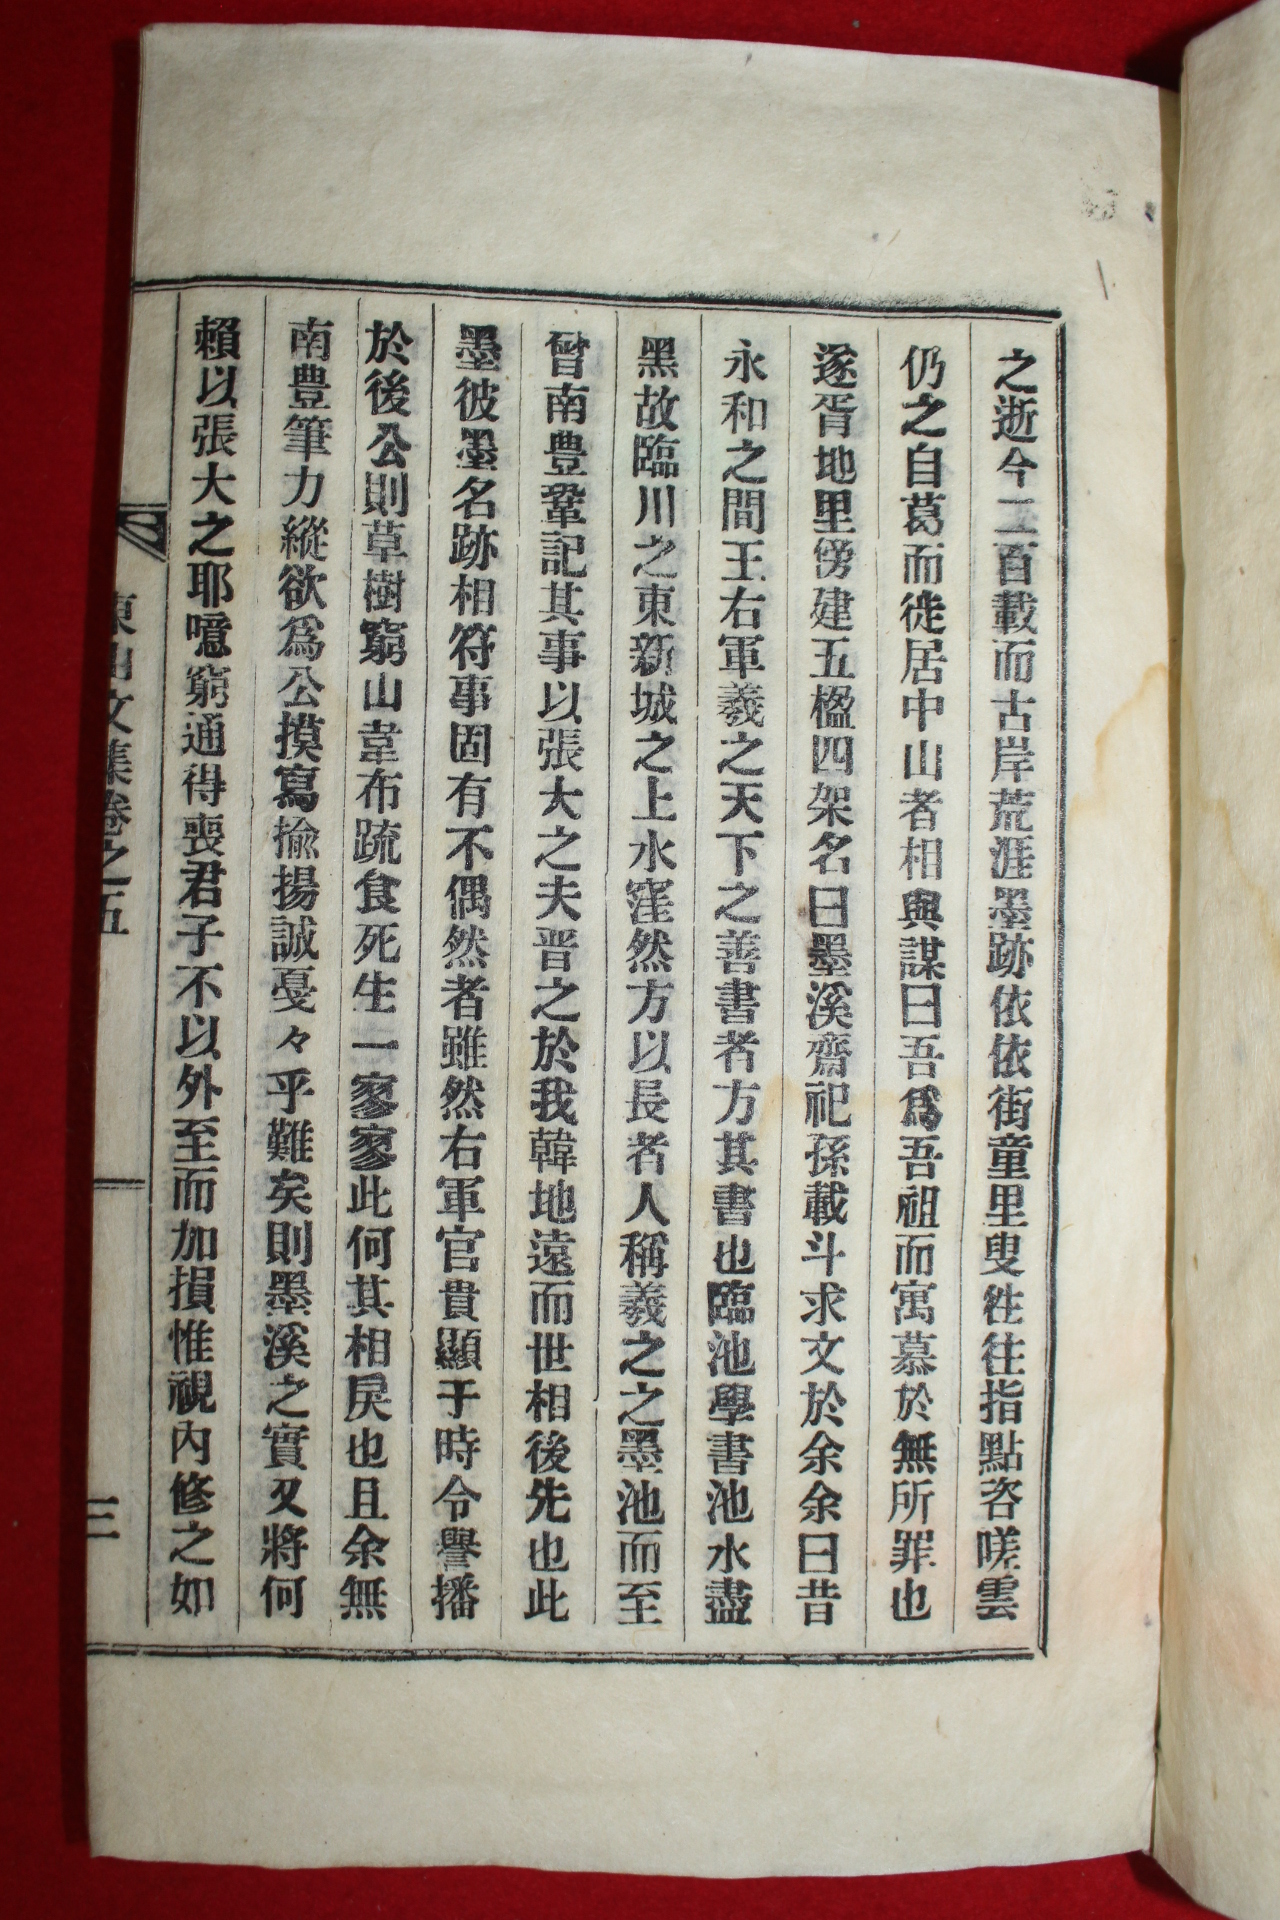 之逝今二百載而古岸荒涯墨跡依依街童里叟徃往指點咨嗟雲
仍之自葛而徙居中山者相與謀曰吾爲吾祖而寓慕於無所罪也
遂胥地里傍建五楹四架名曰墨溪齋祀孫載斗求文於余余曰昔
永和之間王右軍羲之天下之善書者方其書也臨池學書池水盡
黑故臨川之東新城之上水窪然方以長者人稱羲之之墨池而至
曾南豊鞏記其事以張大之夫晋之於我韓地遠而世相後先也此
墨彼墨名跡相符事固有不偶然者雖然右軍官貴顯于時令譽播
於後公則草樹窮山韋布疏食死生一寥寥此何其相戾也且余無
南豊筆力縱欲爲公摸寫揄揚誠戞々乎難矣則墨溪之實又將何
賴以張大之耶噫窮通得喪君子不以外至而加損惟視內修之如
東山文集卷之五
三